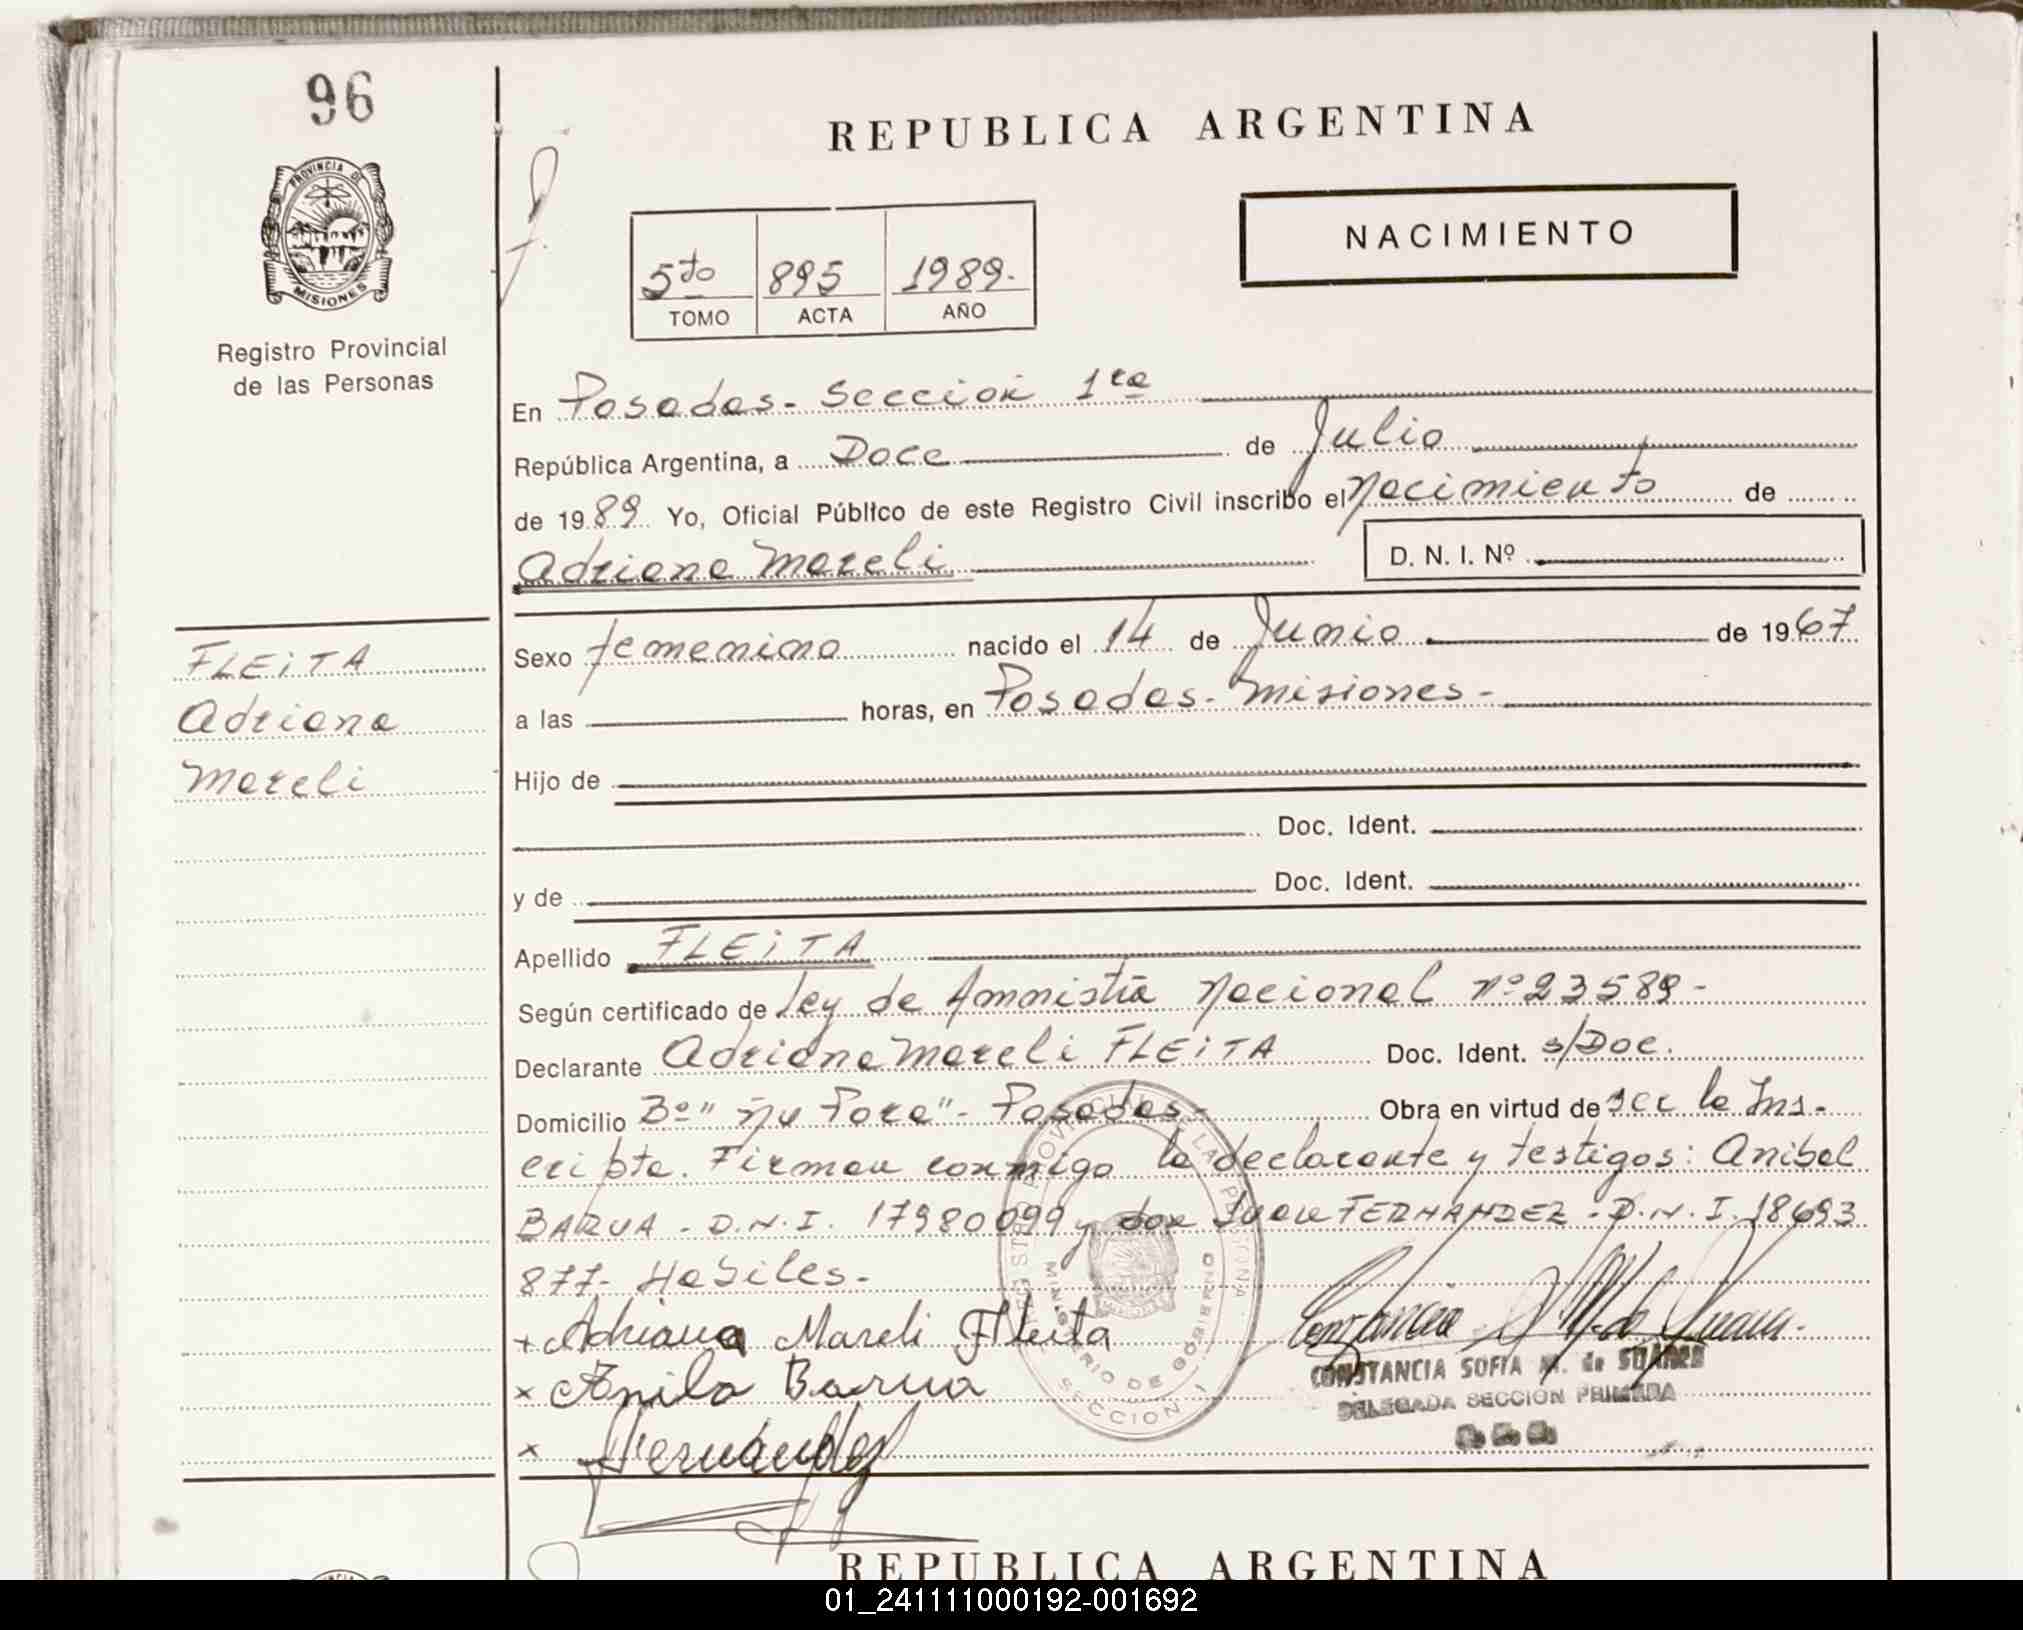 96
PROVINCIA DE
MISIONES
Registro Provincial
de las Personas
FLEiTA
Adriana
Mareli
REPUBLICA ARGENTINA
NACIMIENTO
5to 895 1989.
TOMO ACTA AÑO
En Posadas - Sección 1ra
República Argentina, a Doce de Julio
de 1989 Yo, Oficial Público de este Registro Civil inscribo el Nacimiento de
Adriana Mareli D. N. I. Nº
Sexo femenino nacido el 14 de Junio de 1967
a las horas, en Posadas - Misiones -
Hijo de
Doc. Ident.
y de Doc. Ident.
Apellido FLEiTA
Según certificado de Ley de Amnistía Nacional Nº 23589 -
Declarante Adriana Mareli FLEiTA Doc. Ident. s/Doc.
Domicilio Bº "Ñu Pora" - Posadas - Obra en virtud de ser la Ins-
cripta. Firman conmigo la declarante y testigos: Anibal
BARUA - D.N.I. 17980099 y don Juan FERNANDEZ - D.N.I. 18693
877 - Habiles -
+ Adriana Mareli Fleita
x Barua
x Fernández
MINISTERIO DE GOBIERNO
SECCION 1
CONSTANCIA SOFIA M. de SUAREZ
DELEGADA SECCION PRIMERA
REPUBLICA ARGENTINA
01_241111000192-001692